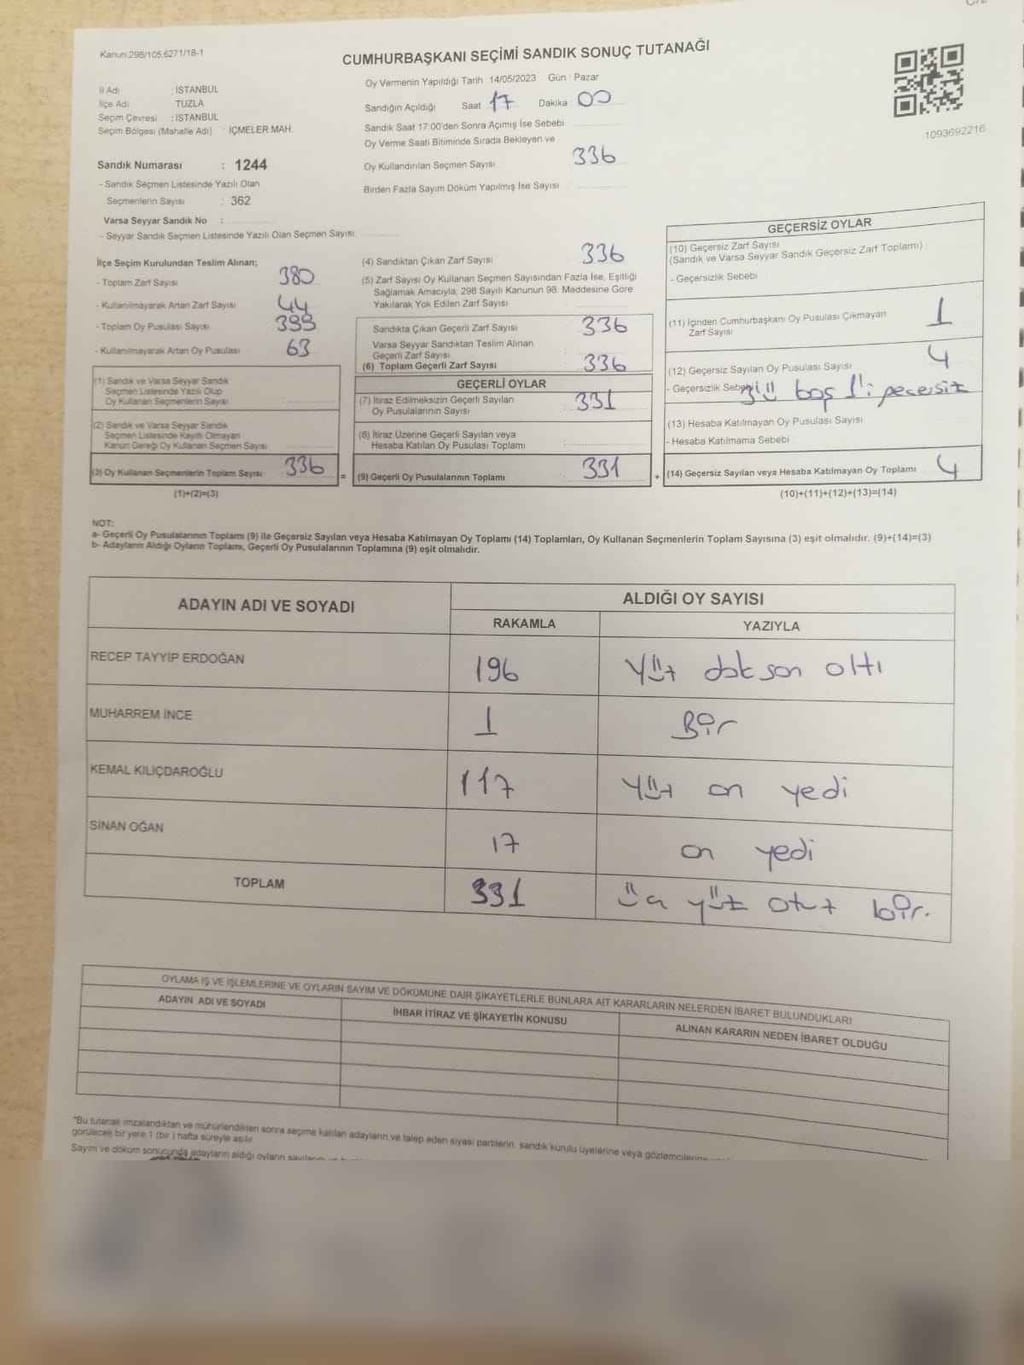 Kanun:298/105.6271/18-1
CUMHURBAŞKANI SEÇİMİ SANDIK SONUÇ TUTANAĞI
İl Adı : İSTANBUL
İlçe Adı : TUZLA
Seçim Çevresi : İSTANBUL
Seçim Bölgesi (Mahalle Adı) : İÇMELER MAH.
Sandık Numarası : 1244
- Sandık Seçmen Listesinde Yazılı Olan
Seçmenlerin Sayısı : 362
Varsa Seyyar Sandık No :
- Seyyar Sandık Seçmen Listesinde Yazılı Olan Seçmen Sayısı
Oy Vermenin Yapıldığı Tarih 14/05/2023 Gün : Pazar
Sandığın Açıldığı Saat 17 Dakika 00
Sandık Saat 17:00'den Sonra Açımış İse Sebebi
Oy Verme Saati Bitiminde Sırada Bekleyen ve
Oy Kullandırılan Seçmen Sayısı 336
Birden Fazla Sayım Döküm Yapılmış İse Sayısı
1093692216
İlçe Seçim Kurulundan Teslim Alınan;
- Toplam Zarf Sayısı 380
- Kullanılmayarak Artan Zarf Sayısı 44
- Toplam Oy Pusulası Sayısı 399
- Kullanılmayarak Artan Oy Pusulası 63
(1) Sandık ve Varsa Seyyar Sandık
Seçmen Listesinde Yazılı Olup
Oy Kullanan Seçmenlerin Sayısı
(2) Sandık ve Varsa Seyyar Sandık
Seçmen Listesinde Kayıtlı Olmayan
Kanun Gereği Oy Kullanan Seçmen Sayısı
(3) Oy Kullanan Seçmenlerin Toplam Sayısı 336 =
(1)+(2)=(3)
(4) Sandıktan Çıkan Zarf Sayısı 336
(5) Zarf Sayısı Oy Kullanan Seçmen Sayısından Fazla İse, Eşitliği
Sağlamak Amacıyla, 298 Sayılı Kanunun 98. Maddesine Göre
Yakılarak Yok Edilen Zarf Sayısı
Sandıkta Çıkan Geçerli Zarf Sayısı 336
Varsa Seyyar Sandıktan Teslim Alınan
Geçerli Zarf Sayısı
(6) Toplam Geçerli Zarf Sayısı 336
GEÇERLİ OYLAR
(7) İtiraz Edilmeksizin Geçerli Sayılan
Oy Pusulalarının Sayısı 331
(8) İtiraz Üzerine Geçerli Sayılan veya
Hesaba Katılan Oy Pusulası Toplamı
(9) Geçerli Oy Pusulalarının Toplamı 331 +
GEÇERSİZ OYLAR
(10) Geçersiz Zarf Sayısı
(Sandık ve Varsa Seyyar Sandık Geçersiz Zarf Toplamı)
- Geçersizlik Sebebi
(11) İçinden Cumhurbaşkanı Oy Pusulası Çıkmayan
Zarf Sayısı 1
(12) Geçersiz Sayılan Oy Pusulası Sayısı 4
- Geçersizlik Sebebi 3'ü boş 1'i geçersiz
(13) Hesaba Katılmayan Oy Pusulası Sayısı
- Hesaba Katılmama Sebebi
(14) Geçersiz Sayılan veya Hesaba Katılmayan Oy Toplamı 4
(10)+(11)+(12)+(13)=(14)
NOT:
a- Geçerli Oy Pusulalarının Toplamı (9) ile Geçersiz Sayılan veya Hesaba Katılmayan Oy Toplamı (14) Toplamları, Oy Kullanan Seçmenlerin Toplam Sayısına (3) eşit olmalıdır. (9)+(14)=(3)
b- Adayların Aldığı Oyların Toplamı, Geçerli Oy Pusulalarının Toplamına (9) eşit olmalıdır.
ADAYIN ADI VE SOYADI
ALDIĞI OY SAYISI
RAKAMLA YAZIYLA
RECEP TAYYİP ERDOĞAN 196 Yüz doksan altı
MUHARREM İNCE 1 Bir
KEMAL KILIÇDAROĞLU 117 Yüz on yedi
SİNAN OĞAN 17 on yedi
TOPLAM 331 üç yüz otuz bir.
OYLAMA İŞ VE İŞLEMLERİNE VE OYLARIN SAYIM VE DÖKÜMÜNE DAİR ŞİKAYETLERLE BUNLARA AİT KARARLARIN NELERDEN İBARET BULUNDUKLARI
ADAYIN ADI VE SOYADI İHBAR İTİRAZ VE ŞİKAYETİN KONUSU ALINAN KARARIN NEDEN İBARET OLDUĞU
*Bu tutanak imzalandıktan ve mühürlendikten sonra seçime katılan adayların ve talep eden siyasi partilerin, sandık kurulu üyelerine veya gözlemcilerine
görülecek bir yere 1 (bir) hafta süreyle asılır
Sayım ve döküm sonucunda adayların aldığı oyların